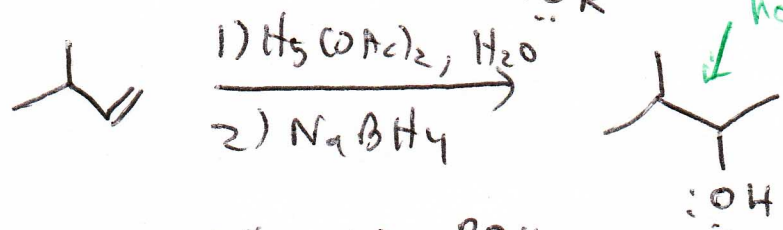 R
1) Hg(OAc)2, H2O
2) NaBH4
:OH